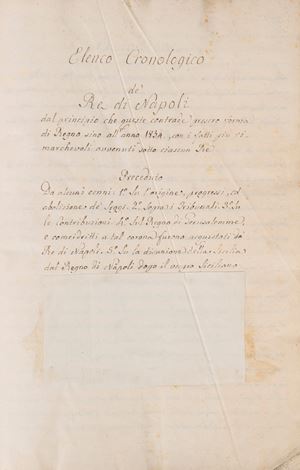 Elenco Cronologico
de'
Re di Napoli
dal principio che queste contrade presero forma
di Regno sino all'anno 1834, con i fatti più ri=
marchevoli avvenuti sotto ciascun Re
Preceduto
Da alcuni cenni: 1º Su l'origine, progressi, ed
abolizione de' Seggi. 2º Sopra i Tribunali. 3º Su
le Contribuzioni. 4º Sul Regno di Gerusalemme,
e come diritti a tal corona furono acquistati da'
Re di Napoli. 5º Su la disunione della Sicilia
dal Regno di Napoli dopo il vespro Siciliano